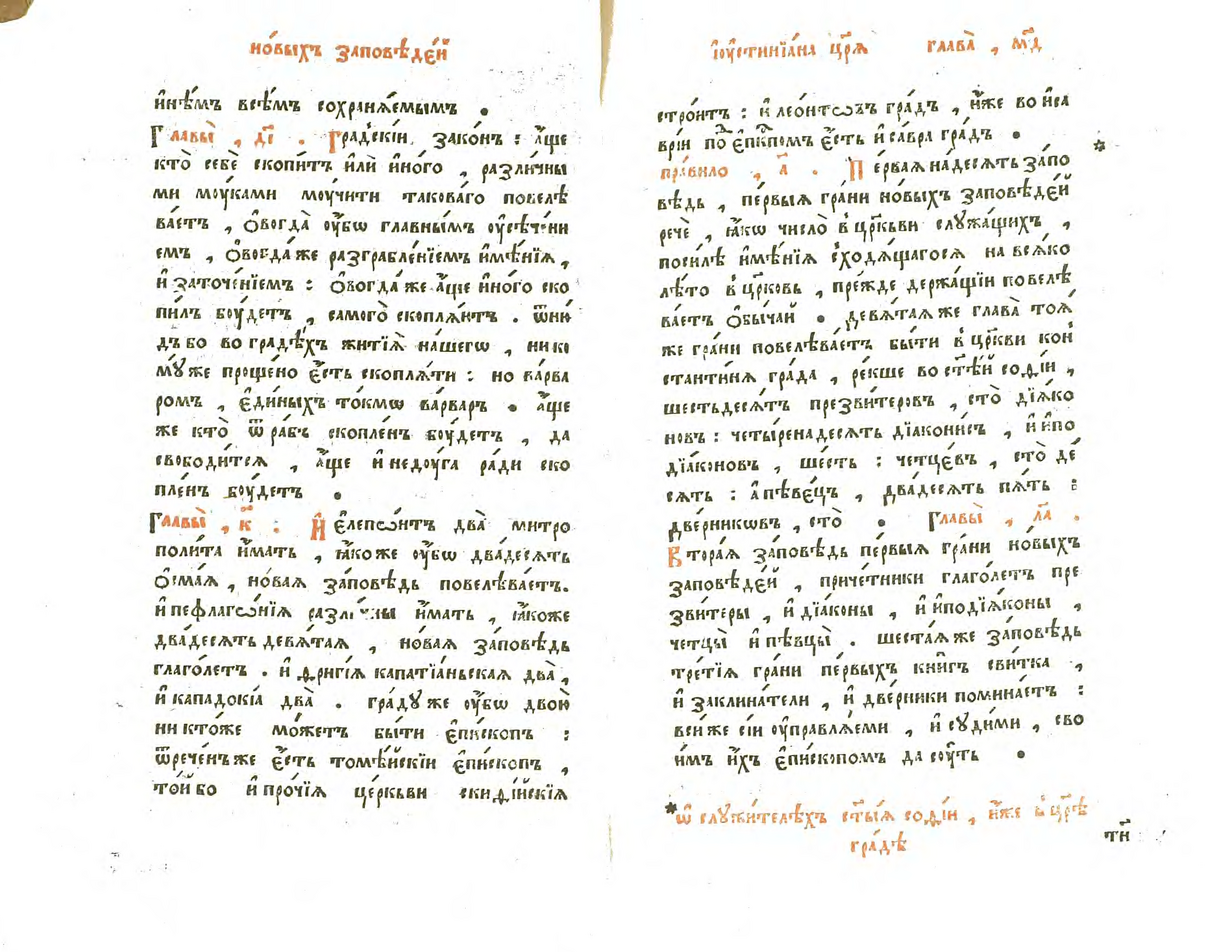 но́выхъ заповѣде́й
и҆нѣ́мъ всѣ́мъ сохраня́емымъ .
Главы̀ , д҃і . Гра́дскїи зако́нъ : а҆́ще
кто̀ себѐ скопи́тъ и҆лѝ и҆но́го , разли́чны
ми мꙋ́ками мꙋ́чити такова́го повелѣ
ва́етъ , ѻ҆вогда̀ ᲂу҆́бѡ гла́внымъ ᲂу҆сѣче́ни
емъ , ѻ҆вогда́ же разграбле́нїемъ и҆мѣ́нїѧ ,
и҆ заточе́нїемъ : ѻ҆вогда́ же а҆́ще и҆но́го ско
пи́лъ бꙋ́детъ , самого̀ скопля́итъ . ѿню
дъ бо во градѣ́хъ житїѧ̀ на́шегѡ , ни ко
мꙋ́же проще́но є҆́сть скопля́ти : но ва́рва
ромъ , є҆ди́ныхъ то́кмѡ ва́рваръ . а҆́ще
же кто̀ ѿ ра́бъ скопле́нъ бꙋ́детъ , да
свободи́тсѧ , а҆́ще и҆ недꙋ́га ра́ди ско
пле́нъ бꙋ́детъ .
Главы̀ , к҃ : И҆ є҆лепсо́нтъ два̀ митро
поли́та и҆́мать , ꙗ҆́коже ᲂу҆́бѡ два́десѧть
ѻ҆сма́ѧ , но́ваѧ за́повѣдь повелѣва́етъ.
и҆ пефлаго́нїѧ и҆́мать , ꙗ҆́коже
два́десѧть девѧ́таѧ , но́ваѧ за́повѣдь
глаго́летъ . и҆ фриги́ѧ капатїа́ньскаѧ два̀ ,
и҆ кападокі́а два̀ . гра́дꙋ же ᲂу҆́бѡ двою̀
никто́же мо́жетъ бы́ти є҆пи́скопъ :
ѿрече́нъ же є҆́сть томѣ́йскїи є҆пи́скопъ ,
то́й бо и҆ про́чїѧ це́ркьви скиѳі́йскїѧ
і҆ꙋстинїа́на цр҃ѧ̀ глава̀ , м҃д
стро́итъ : и҆ лео́нтѡвъ гра́дъ , и҆́же во и҆са
врі́и под̾ є҆пк҃помъ є҆́сть и҆ са́вра гра́дъ .
пра́вило , а҃ . Пе́рваѧ на́десѧть за́по
вѣдь , пе́рвыѧ гра́ни но́выхъ заповѣде́й
речѐ , ꙗ҆́кѡ число̀ в҆ цр҃кьви слꙋжа́щихъ ,
поси́лѣ и҆мѣ́нїѧ схо́дѧщагосѧ на всѧ́ко
лѣ́то в҆ цр҃ковь , пре́жде держа́щїи повелѣ
ва́етъ ѻ҆бы́чай . девѧ́таѧ же глава̀ тоѧ́
же гра́ни повелѣва́етъ бы́ти в҆ цр҃кви кон
стантинѧ гра́да , ре́кше во ст҃ѣ́й софі́и ,
шестьдесѧ́тъ презви́теровъ , сто̀ дїѧ́ко
новъ : четы́ренадесѧть дїа́конисъ , и҆ и҆́по
дїа́коновъ , ше́сть : четце́въ , сто̀ де́
сѧть : а҆ пѣве́цъ , два́десѧть пѧ́ть :
две́рникѡвъ , сто̀ . Главы̀ , л҃а .
Втора́ѧ за́повѣдь пе́рвыѧ гра́ни но́выхъ
заповѣде́й , приче́тники глаго́летъ пре
зви́теры , и҆ дїа́коны , и҆ и҆подїѧ́коны ,
четцы̀ и҆ пѣвцы̀ . шеста́ѧ же за́повѣдь
тре́тїѧ гра́ни пе́рвыхъ кни́гъ сви́тка ,
и҆ заклина́тели , и҆ две́рники помина́етъ :
вси́ же сі́и ᲂу҆правлѧ́еми , и҆ сꙋди́ми , сво
и́мъ и҆́хъ є҆пи́скопомъ да сꙋ́ть .
* ѡ҆ слꙋжи́телехъ ст҃ы́ѧ софі́и , и҆́же в҆ цр҃ѣ
гра́дѣ
ти҃